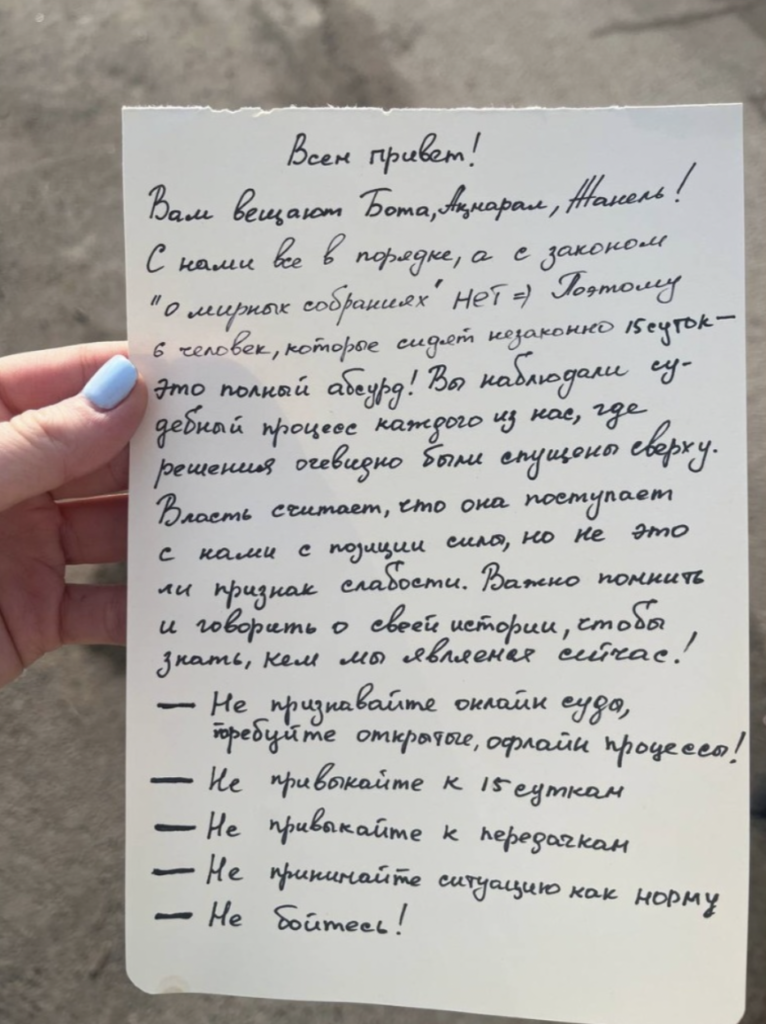 Всем привет!
Вам вещают Бота, Ақнарал, Жанель!
С нами все в порядке, а с законом
"о мирных собраниях" НЕТ => Поэтому
6 человек, которые сидят незаконно 15 суток —
это полный абсурд! Вы наблюдали су-
дебный процесс каждого из нас, где
решения очевидно были спущены сверху.
Власть считает, что она поступает
с нами с позиции силы, но не это
ли признак слабости. Важно помнить
и говорить о своей истории, чтобы
знать, кем мы являемся сейчас!
— Не признавайте онлайн суды,
требуйте открытые, офлайн процессы!
— Не привыкайте к 15 суткам
— Не привыкайте к передачкам
— Не принимайте ситуацию как норму
— Не бойтесь!